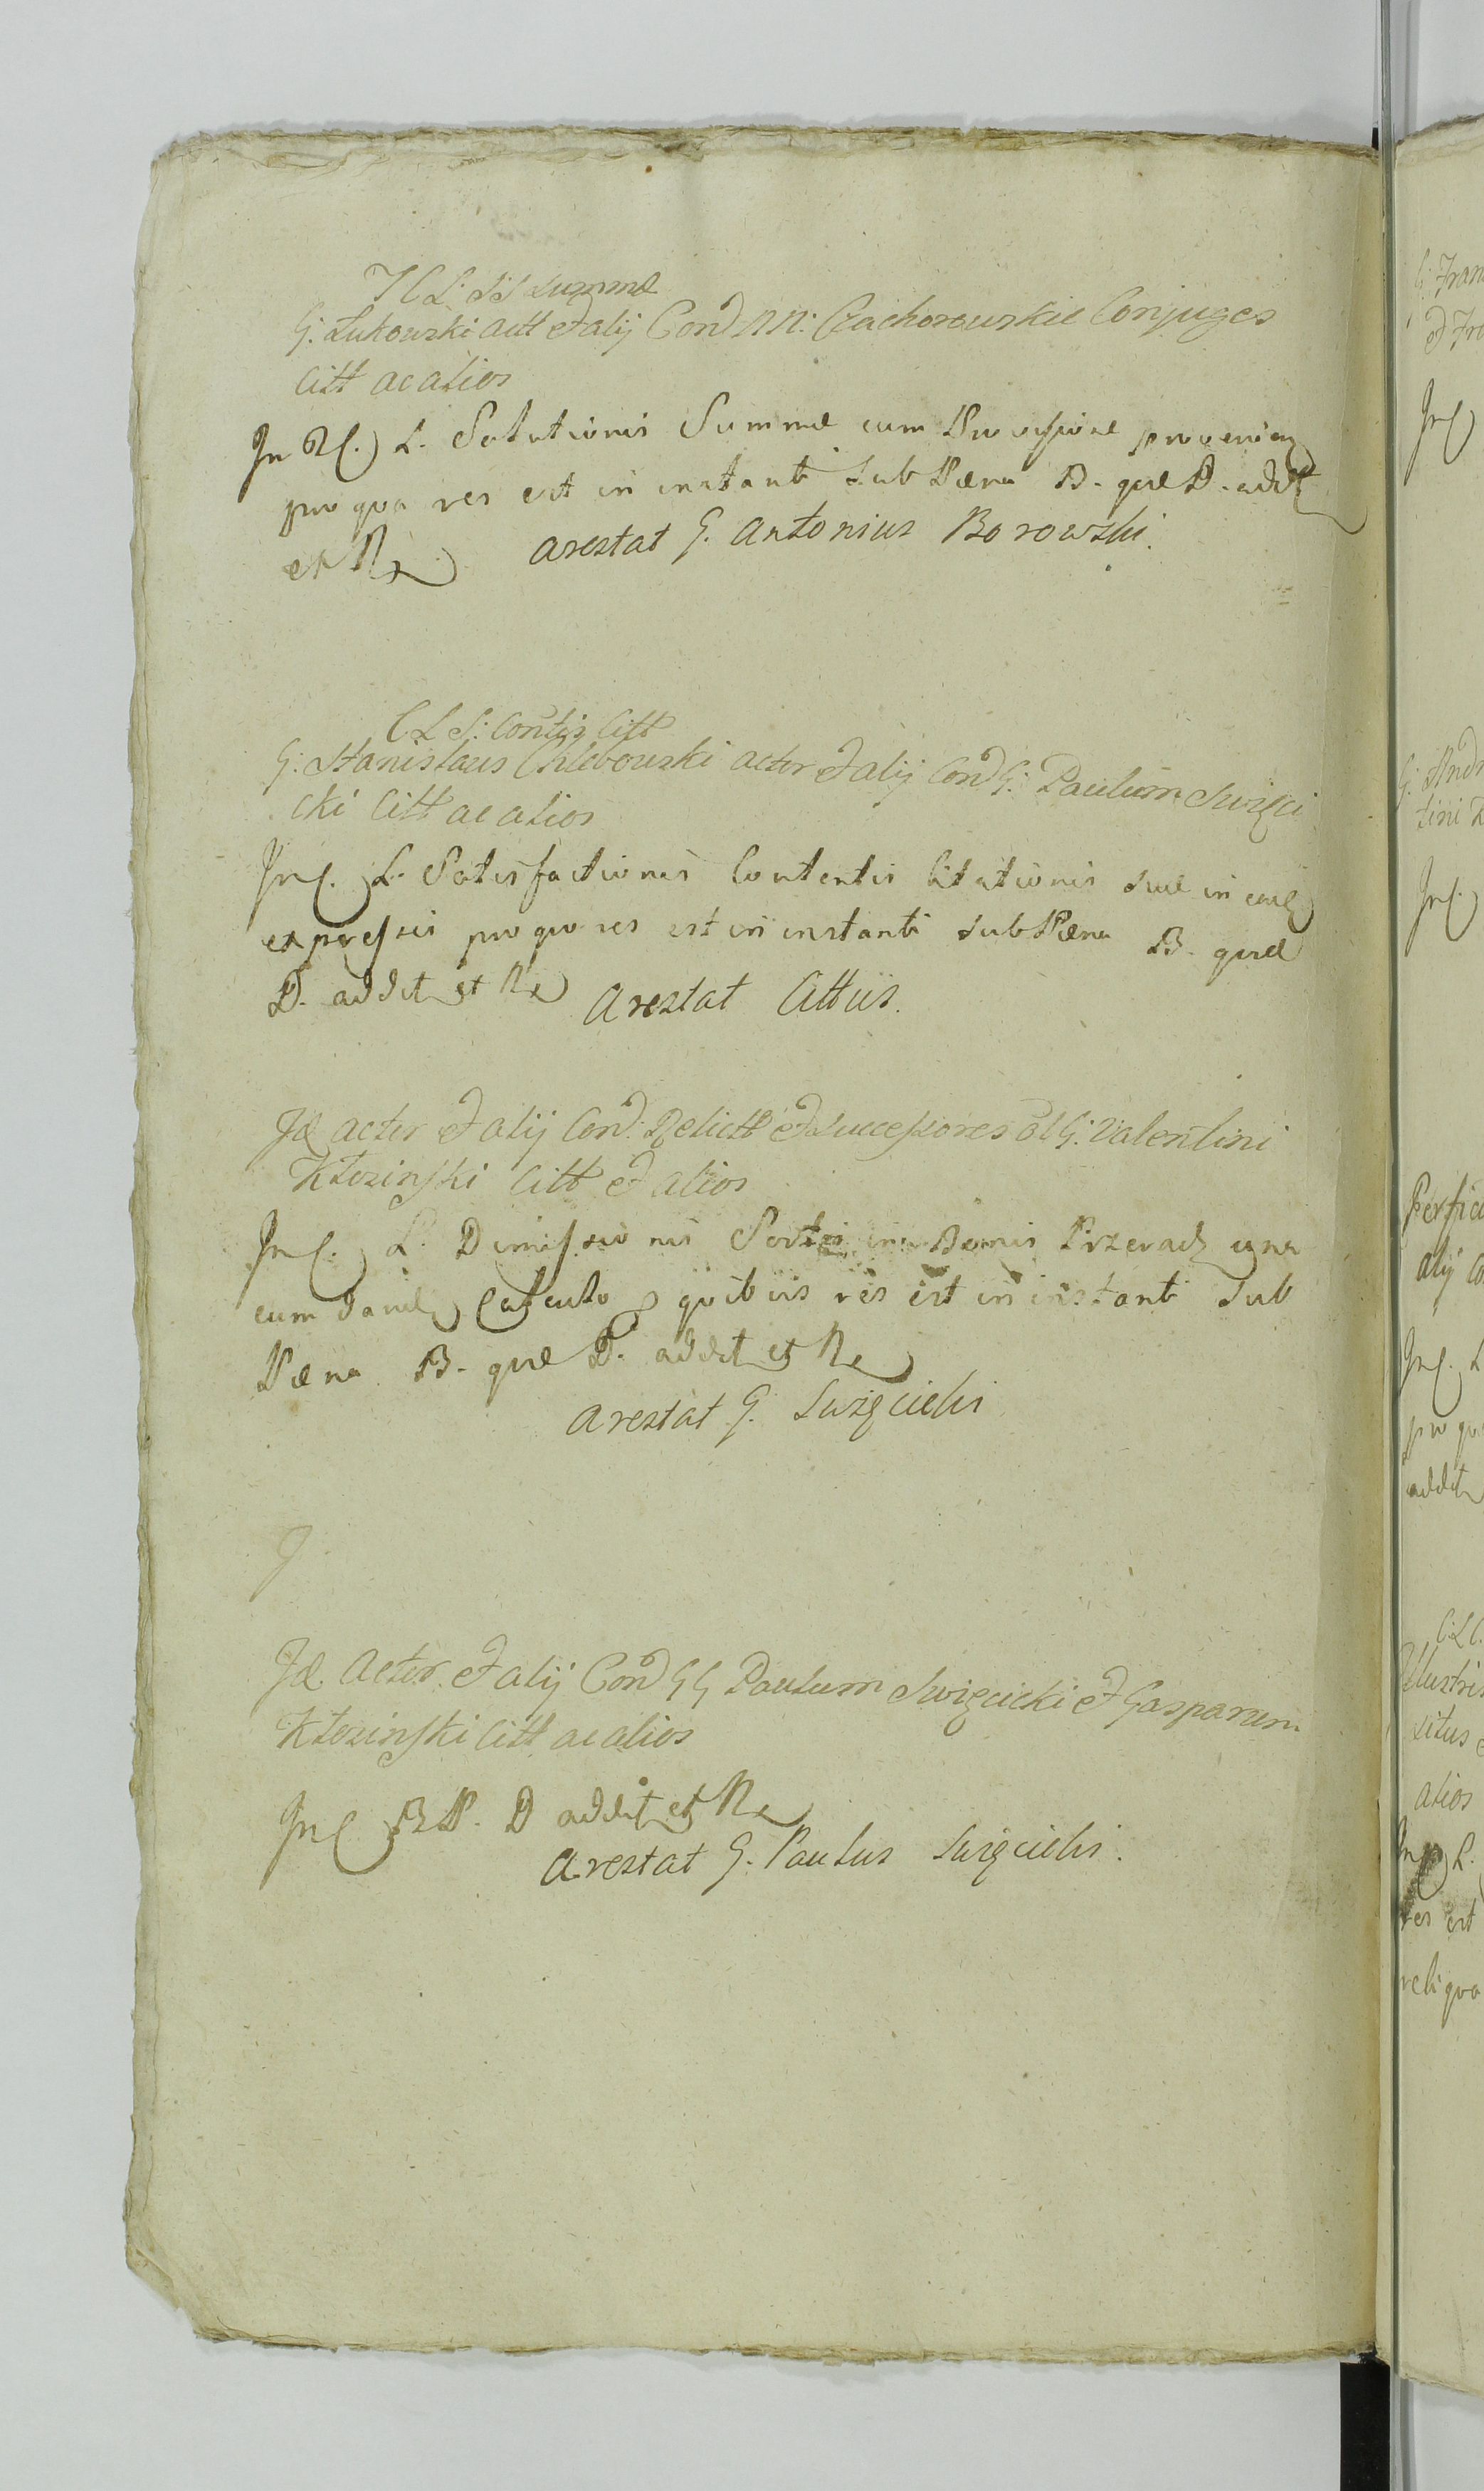 G. Łukowski actt et alij Con NN. Czachorowskie Conjuges
citt ac alios
L. Solutionis Summæ cum Provisione
pro qva res est in instanti sub Pæna B. quæ D. addt
et R arestat G. Antonius Borowski.
C L S: Contis Citt
G. Stanislaus Chlebowski actor et alij Con G. Paulum Swięci
cki Citt ac alios
In C. L. Satisfactionis Contentis Citationis suæ in
expressis pro qvo res est in instanti sub Pæna B. quæ
D. addit et R arestat Cittus.
Id actor et alij Con. Relictt et Successores ol G. Valentini
Kłosinski Citt et alios
In C. L. Dimissionis Sortis in Bonis Przeradz una
cum Calculo qvibus res est in instanti sub
Pæna B. quæ D. addit et R
arestat G. Swięcicki
Id. Actor et alij Con GG Paulum Swięcicki et Gasparum
Kłosinski Citt ac alios
In C B P. D addit et R
arestat G. Paulus Swięcicki.
G. Fran
In C
G. Andr
tini
In C.
alij Co
In C. L
pro qv
addit
Illustris
situs
alios
L.
res est
reliqva